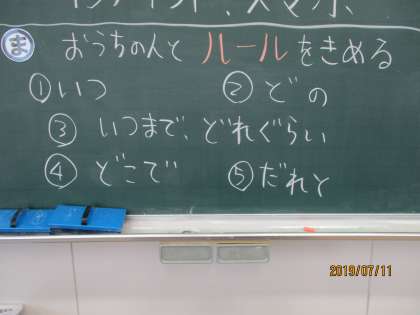 、スマホ、
ま おうちの人と ルールをきめる
①いつ ②どの
③いつまで、どれぐらい
④どこで ⑤だれと
2019/07/11